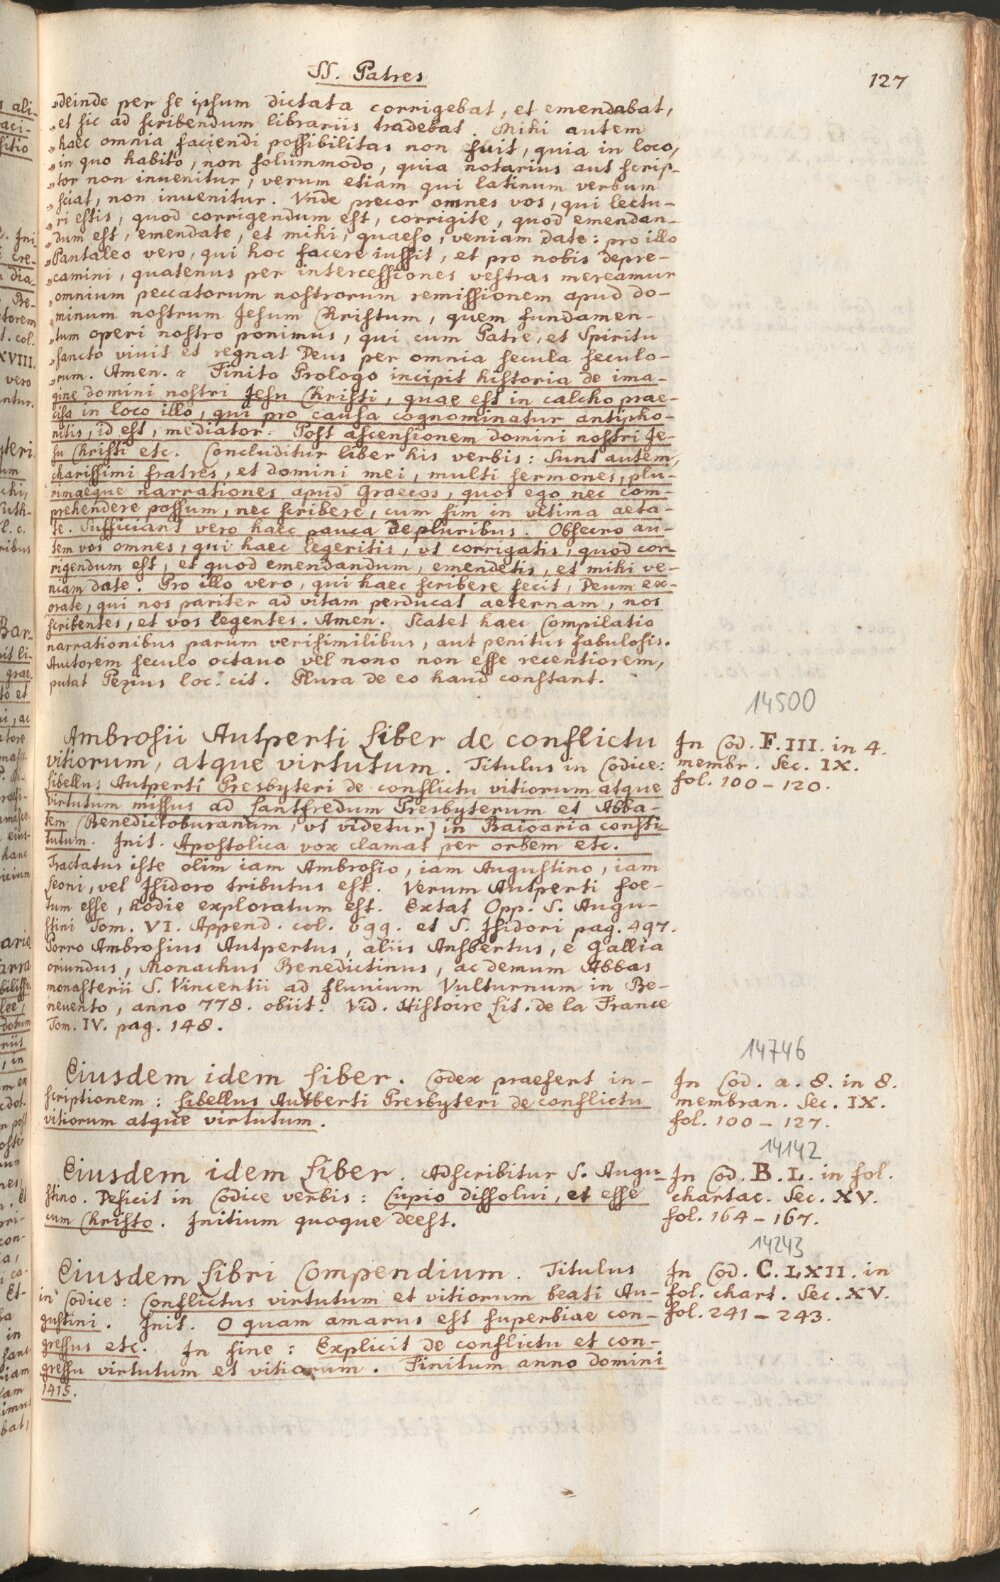 SS. Patres
127
„deinde per se ipsum dictata corrigebat, et emendabat,
„et sic ad scribendum librariis tradebat. Mihi autem
„haec omnia faciendi possibilitas non fuit, quia in loco,
„in quo habito, non solummodo, quia notarius aut scrip-
„tor non inuenitur, verum etiam qui latinum verbum
„sciat, non inuenitur. Vnde precor omnes vos, qui lectu-
„ri estis, quod corrigendum est, corrigite, quod emendan-
„dum est, emendate, et mihi, quaeso, veniam date: pro illo
„Pantaleo vero, qui hoc facere iussit, et pro nobis depre-
„camini, quatenus per intercessiones vestras mereamur
„omnium peccatorum nostrorum remissionem apud do-
„minum nostrum Jesum Christum, quem fundamen-
„tum operi nostro ponimus, qui cum Patre, et Spiritu
„sancto viuit et regnat Deus per omnia secula seculo-
„rum. Amen. „ Finito Prologo incipit historia de ima-
gine domini nostri Jesu Christi, quae est in calcho prae-
cisa in loco illo, qui pro causa cognominatur antipho-
nitis, id est, mediator. Post ascensionem domini nostri Je-
su Christi etc. Concluditur liber his verbis: Sunt autem,
charissimi fratres, et domini mei, multi sermones, plu-
rimaeque narrationes apud Graecos, quos ego nec com-
prehendere possum, nec scribere, cum sim in vltima aeta-
te. Sufficiant vero haec pauca de pluribus. Obsecro au-
tem vos omnes, qui haec legeritis, vt corrigatis, quod cor-
rigendum est, et quod emendandum, emendetis, et mihi ve-
niam date. Pro illo vero, qui haec scribere fecit, Deum ex-
orate, qui nos pariter ad vitam perducat aeternam, nos
scribentes, et vos legentes. Amen. Scatet haec Compilatio
narrationibus parum verisimilibus, aut penitus fabulosis.
Auctorem seculo octauo vel nono non esse recentiorem,
putat Pezius loc. cit. Plura de eo haud constant.
14500
Ambrosii Autperti Liber de conflictu
vitiorum, atque virtutum. Titulus in Codice:
Libellus Autperti Presbyteri de conflictu vitiorum atque
virtutum missus ad Lantfredum Presbyterum et Abba-
tem (Benedictoburanum, vt videtur) in Baioaria consti-
tutum. Init. Apostolica vox clamat per orbem etc.
Tractatus iste olim iam Ambrosio, iam Augustino, iam
Leoni, vel Isidoro tributus est. Verum Autperti foe-
tum esse, hodie exploratum est. Extat Opp. S. Augu-
stini Tom. VI. Append. col. 699. et S. Isidori pag. 497.
Porro Ambrosius Autpertus, aliis Ansbertus, e Gallia
oriundus, Monachus Benedictinus, ac demum Abbas
monasterii S. Vincentii ad fluuium Vulturnum in Be-
neuento, anno 778. obiit. Vid. Histoire Lit. de la France
Tom. IV. pag. 148.
In Cod. F. III. in 4.
membr. Sec. IX.
fol. 100-120.
14746
Eiusdem idem Liber. Codex praefert in-
scriptionem: Libellus Autberti Presbyteri de conflictu
vitiorum atque virtutum.
In Cod. a. 8. in 8.
membran. Sec. IX.
fol. 100-127.
14142
Eiusdem idem Liber. Adscribitur S. Augu-
stino. Deficit in Codice verbis: Cupio dissolui, et esse
cum Christo. Initium quoque deest.
In Cod. B. L. in fol.
chartac. Sec. XV.
fol. 164-167.
14243
Eiusdem Libri Compendium. Titulus
in Codice: Conflictus virtutum et vitiorum beati Au-
gustini. Init. O quam amarus est superbiae con-
gressus etc. In fine: Explicit de conflictu et con-
gressu virtutum et vitiorum. Finitum anno domini
1415.
In Cod. C. LXII. in
fol. chart. Sec. XV.
fol. 241-243.